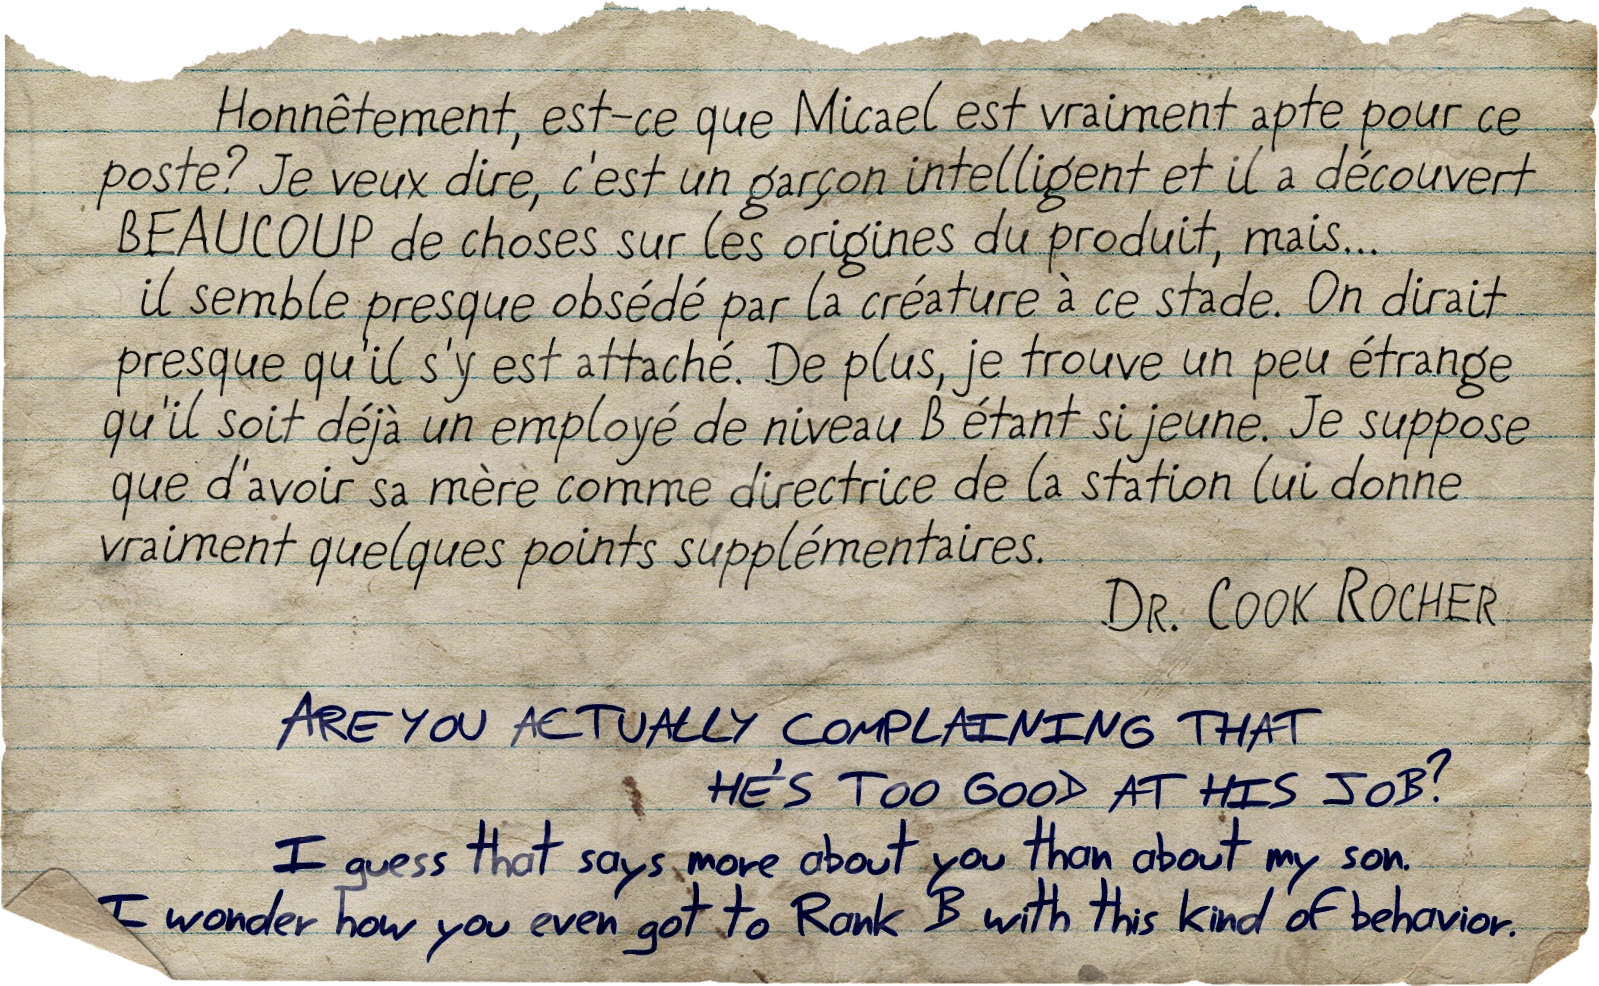 Honnêtement, est-ce que Micael est vraiment apte pour ce
poste? Je veux dire, c'est un garçon intelligent et il a découvert
BEAUCOUP de choses sur les origines du produit, mais...
il semble presque obsédé par la créature à ce stade. On dirait
presque qu'il s'y est attaché. De plus, je trouve un peu étrange
qu'il soit déjà un employé de niveau B étant si jeune. Je suppose
que d'avoir sa mère comme directrice de la station lui donne
vraiment quelques points supplémentaires.
DR. COOK ROCHER
ARE YOU ACTUALLY COMPLAINING THAT
HE'S TOO GOOD AT HIS JOB?
I guess that says more about you than about my son.
I wonder how you even got to Rank B with this kind of behavior.